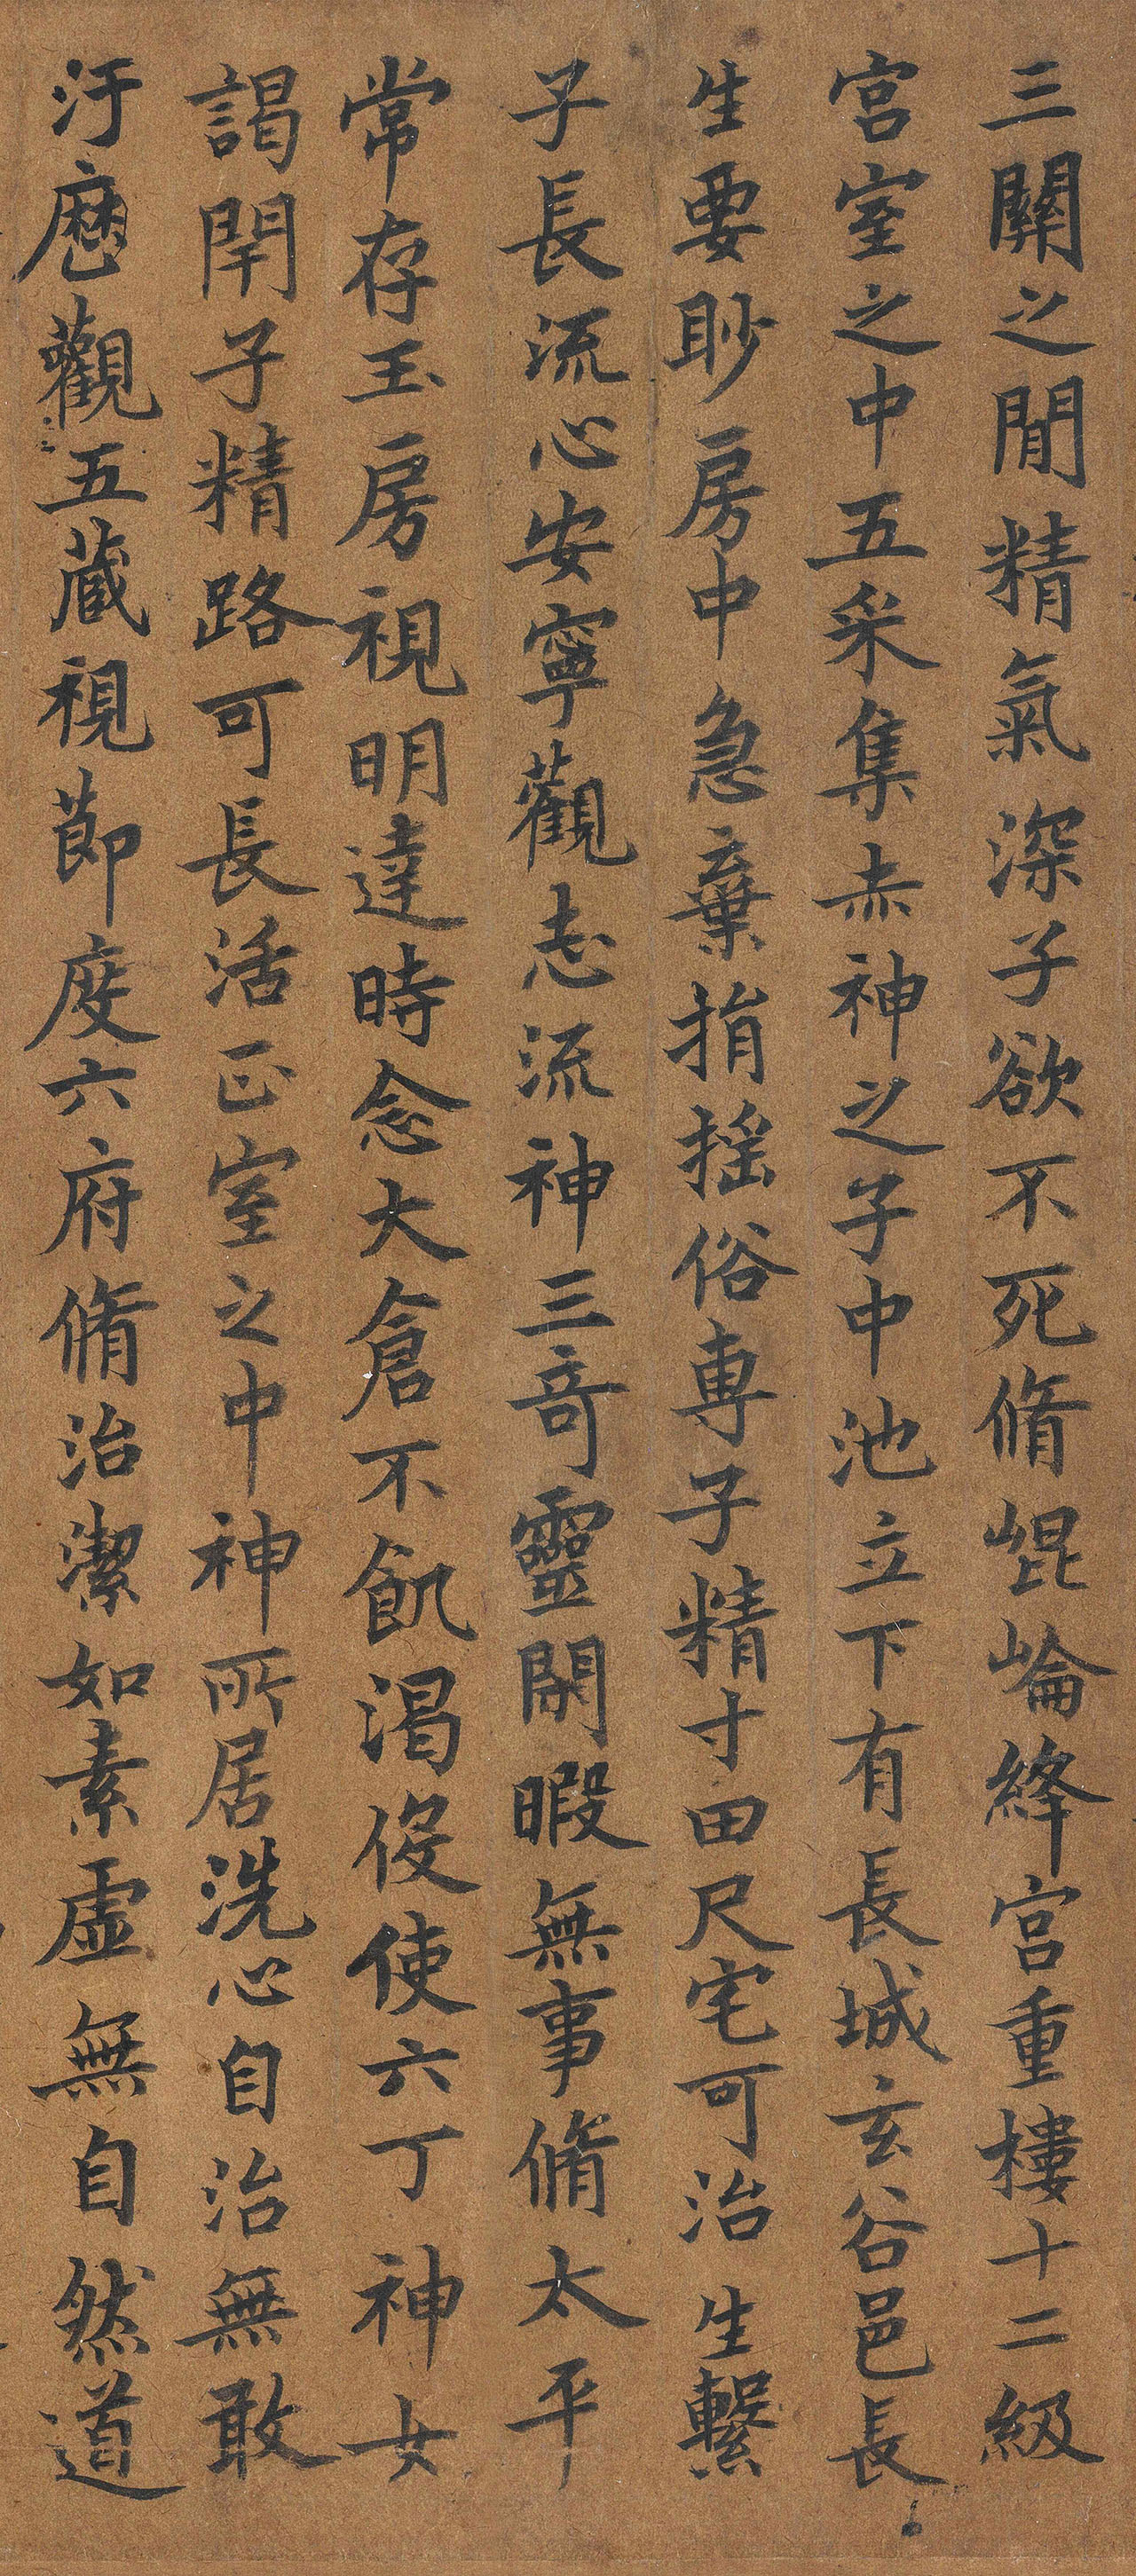 三關之間精氣深子欲不死脩崐崘絳宮重樓十二級
宮室之中五采集赤神之子中池立下有長城玄谷邑長
生要眇房中急棄捐摇俗専子精寸田尺宅可治生繫
子長流心安寧觀志流神三竒靈閑暇無事脩太平
常存玉房視明達時念大倉不飢渴役使六丁神女
謁閇子精路可長活正室之中神所居洗心自治無敢
汙歴觀五藏視節度六府脩治潔如素虛無自然道